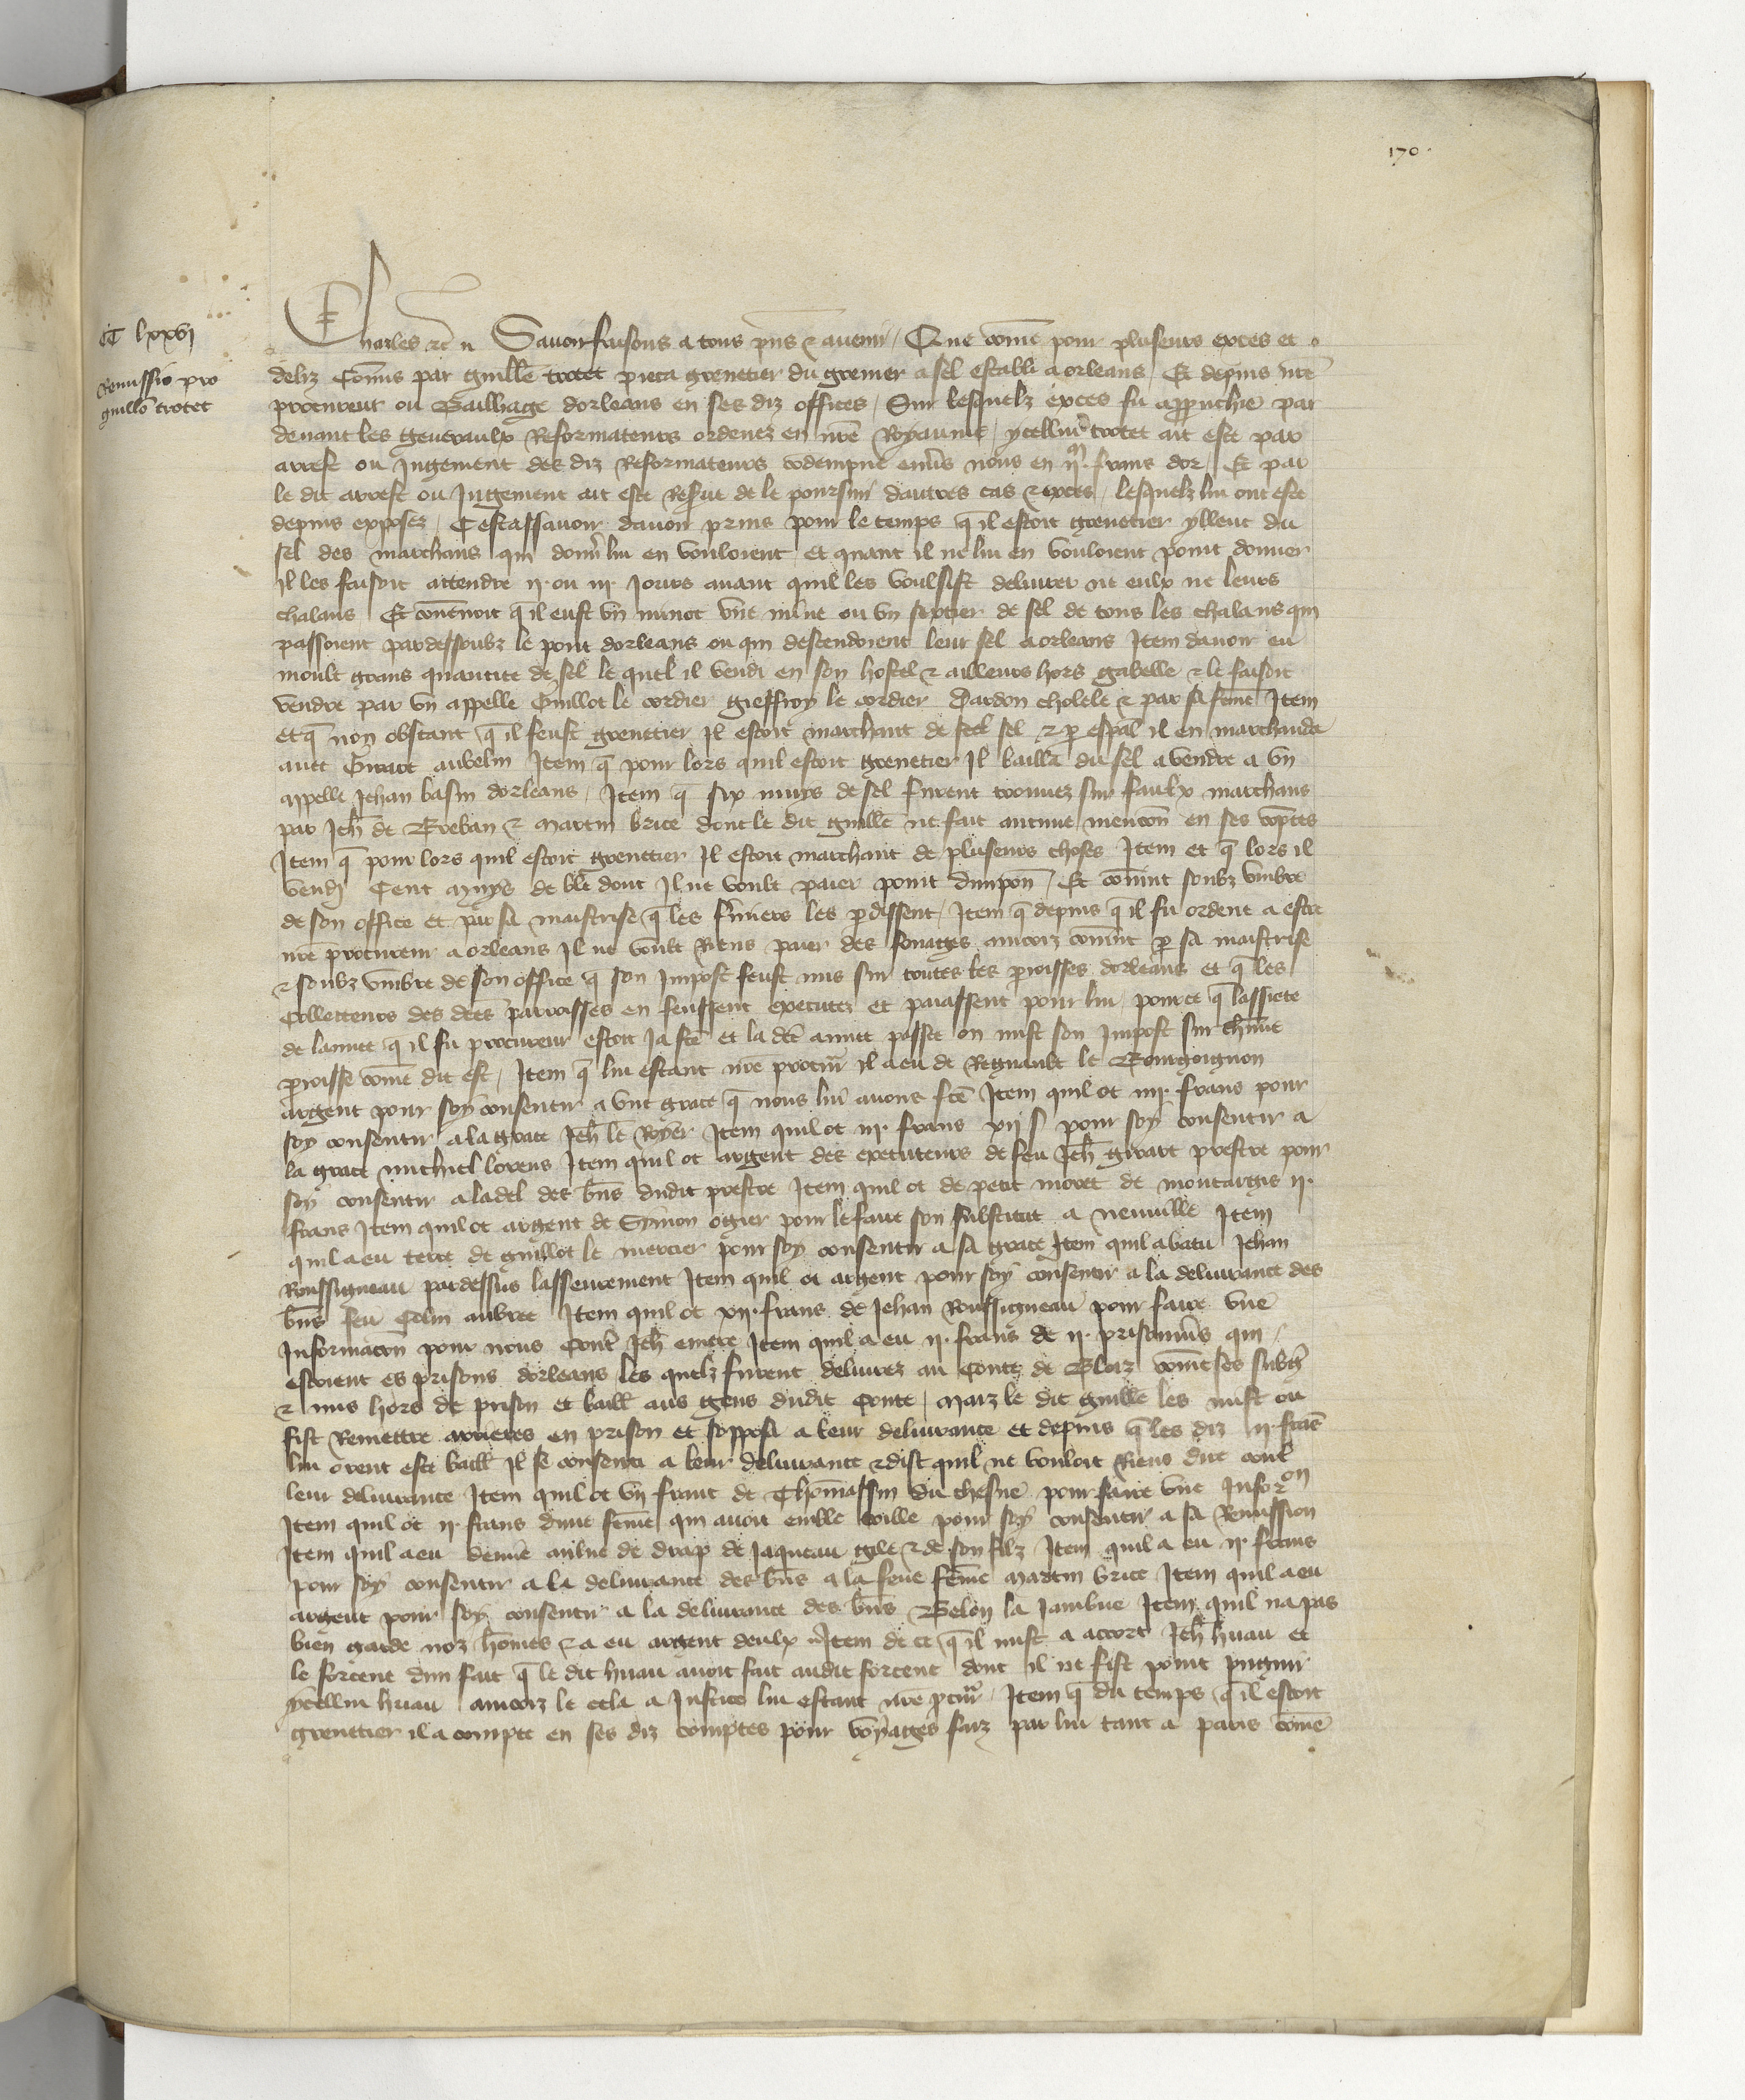 170
CC lxxvi
Remissio pro
guillo trotet
Charles etc Savoir faisons a tous pns & avenir / Que come pour pluseurs exces et
deliz Comis par guille trotet pieca grenetier du grenier a sel establi a orleans / Et depuis nre
procureur ou Bailliage dorleans en ses diz offices / Sur lesquelz exces fu approuchie par
devant les generaulx Reformateurs ordenez en nre Royaume / ycellui trotet ait este par
arrest ou Jugement des diz Reformateurs condempne envs nous en ijm frans dor / Et par
le dit arrest ou Jugement ait este Reserve de le poursuir dautres cas & exces / lesquelz lui ont este
depuis exposez / Cestassavoir davoir prins pour le temps q il estoit grenetier yllenc du
sel des marchans qui donner lui en vouloient et quant il ne lui en vouloient point donner
il les faisoit attendre ij ou iij Jours avant quil les voulsist delivrer ne eulx ne leurs
chalans Et convenoit q il eust vn minot vne mine ou vn sextier de sel de tous les chalans qui
passoient pardessoubz le pont dorleans ou qui descendoient leur sel a orleans Item davoir eu
moult grans quantite de sel le quel il vendi en son hostel & ailleurs hors gabelle & le faisoit
vendre par vn appelle Guillot le cordier gieffroy le cordier Dardon cholele & par sa feme Item
et q non obstant q il feust grenetier Il estoit marchant de sel & p espal il en marchanda
avec Girart aubelin Item q pour lors quil estoit grenetier Il bailla du sel a vendre a vn
appelle Jehan basin dorleans / Item q six muys de sel furent trouvez sur faulx marchans
par Jeh de Breban & Martin brice dont le dit guille ne fait aucune mencon en ses comptes
Item q pour lors quil estoit grenetier Il estoit marchant de pluseurs choses Item et q lors il
vendi Cent muys de ble dont Il ne voult paier point dimpon / Et convint soubz vmbre
de son office et par sa maistrise q les fmiers les pdissent / Item q depuis q il fu ordene a estre
nre procureur a orleans Il ne voult Riens paier des fouages aincoiz convint p sa maistrise
& soubz vmbre de son office q son Impost feust mis sur toutes les proisses dorleans et q les
Collecteurs des dces parroisses en feussent executez et paiassent pour lui / pour ce q lassiete
de lannee q il fu procureur estoit ja fce et la dce annee passee on mist son Impost sur chune
proisse come dit est / Item q lui estant nre procur il a eu de Regnault le Bourgoignon
argent pour soy consentir a vne grace q nous lui avons fce Item quil ot iiij frans pour
soy consentir a la grace Jeh le Royer Item quil ot iij frans xij s pour soy consentir a
la grace michiel lorens Item quil ot argent des executeurs de feu Jeh girart prestre pour
soy consentir a la del des bns dudit prestre Item quil ot de petit moret de montargis ij
frans Item quil ot argent de Symon ogier pour le faire son substitut a neuville Item
quil a eu terre de guillot le mercier pour soy consentir a sa grace Item quil a batu Jehan
Roussigneau pardessus lasseurement Item quil ot argent pour soy consentir a la delivrance des
bns feu Colin aubree Item quil ot xij frans de Jehan Roussigneau pour faire vne
Informacon pour nous Contre Jeh emere Item quil a eu ij frans de ij prisonniers qui
estoient es prisons dorleans les quelz furent delivrez au Conte de Bloiz come ses subgz
& mis hors de prison et baill aus gens dudit Conte / Maiz le dit guille les mist ou
fist Remettre arrieres en prison et soppose a leur delivrance et depuis q les diz ij frans
lui orent este baill Il se consenti a leur delivrance & dist quil ne vouloit Riens dire contre
leur delivrance Item quil ot vn franc de Thomassin du chesne pour faire vne Infor on
Item quil ot ij frans dune feme qui avoit emble toille pour soy consentir a sa Remission
Item quil a eu demie aulne de drap de Jaqueau gile & de son filz Item quil a eu ij frans
pour soy consentir a la delivrance des bns a la feue feme Martin brice Item quil a eu
argent pour soy consentir a la delivrance des bns Belon la Jambue Item quil na pas
bien garde noz homes & a eu argent deulx Item de ce q il mist a accort Jeh huau et
le forcene dun fait q le dit huau avoit fait audit forcene dont il ne fist point pugnir
ycellui huau aincoiz le cela a Justice lui estant nre pcur / Item q du temps q il estoit
grenetier il a compte en ses diz comptes pour voyages faiz par lui tant a paris come